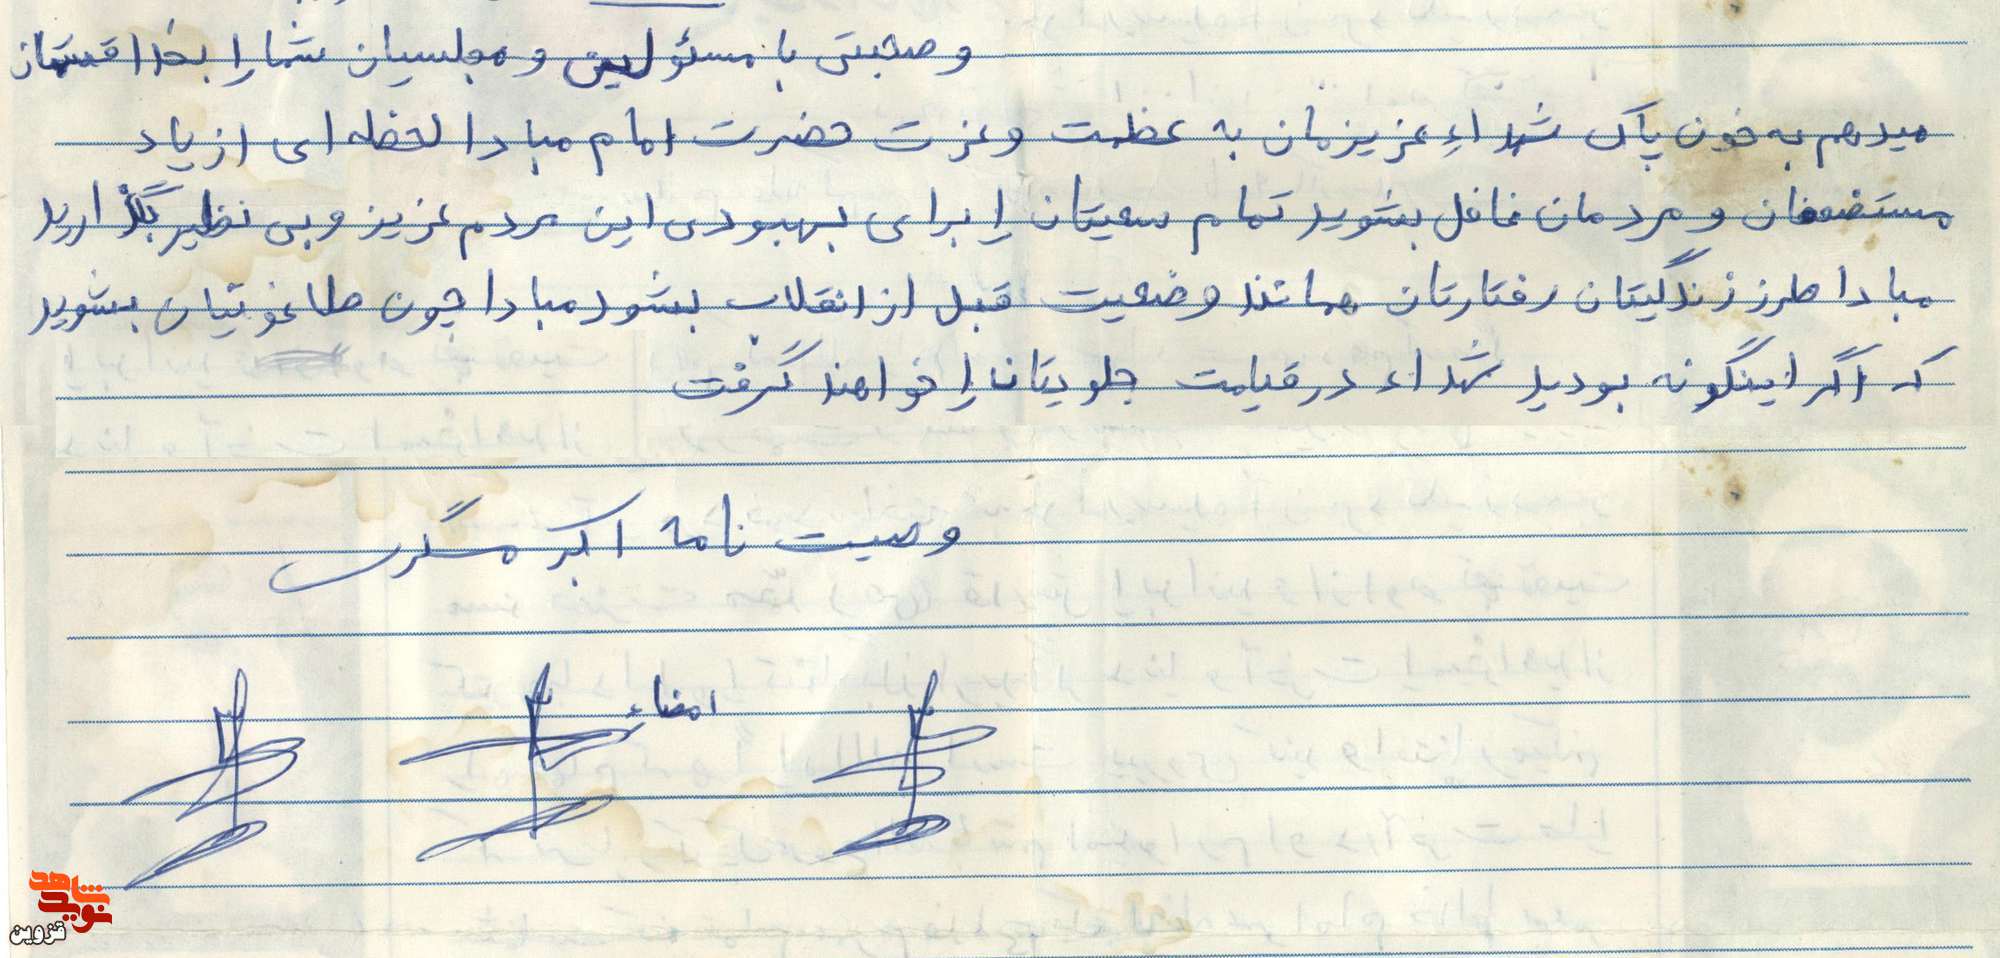 و صحبتی با مسئولین و مجلسیان شما را بخدا قسمتان
میدهم به خون پاک شهداءِ عزیزمان به عظمت و عزت حضرت امام مبادا لحظه ای از یاد
مستضعفان و مردمان غافل بشوید تمام سعیتان را برای بهبودی این مردم عزیز و بی نظیر بگذارید
مبادا طرز زندگیتان رفتارتان همانند وضعیت قبل از انقلاب بشود مبادا چون طاغوتیان بشوید
که اگر اینگونه بودید شهداء در قیامت جلویتان را خواهند گرفت
وصیت نامه اکبر مسگری
امضاء
نوید شاهد
قزوین